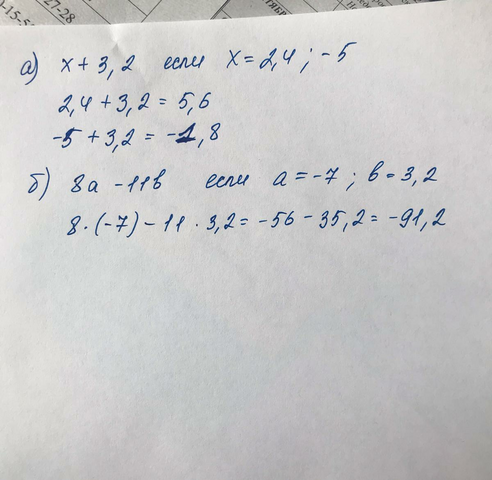 27-28
-15-5
а) x + 3,2 если x = 2,4 ; -5
2,4 + 3,2 = 5,6
-5 + 3,2 = -1,8
б) 8a - 11b если a = -7 ; b = 3,2
8 · (-7) - 11 · 3,2 = -56 - 35,2 = -91,2